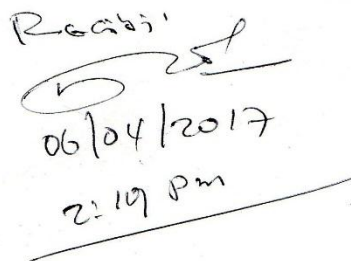 Recibí
06/04/2017
2:19 pm